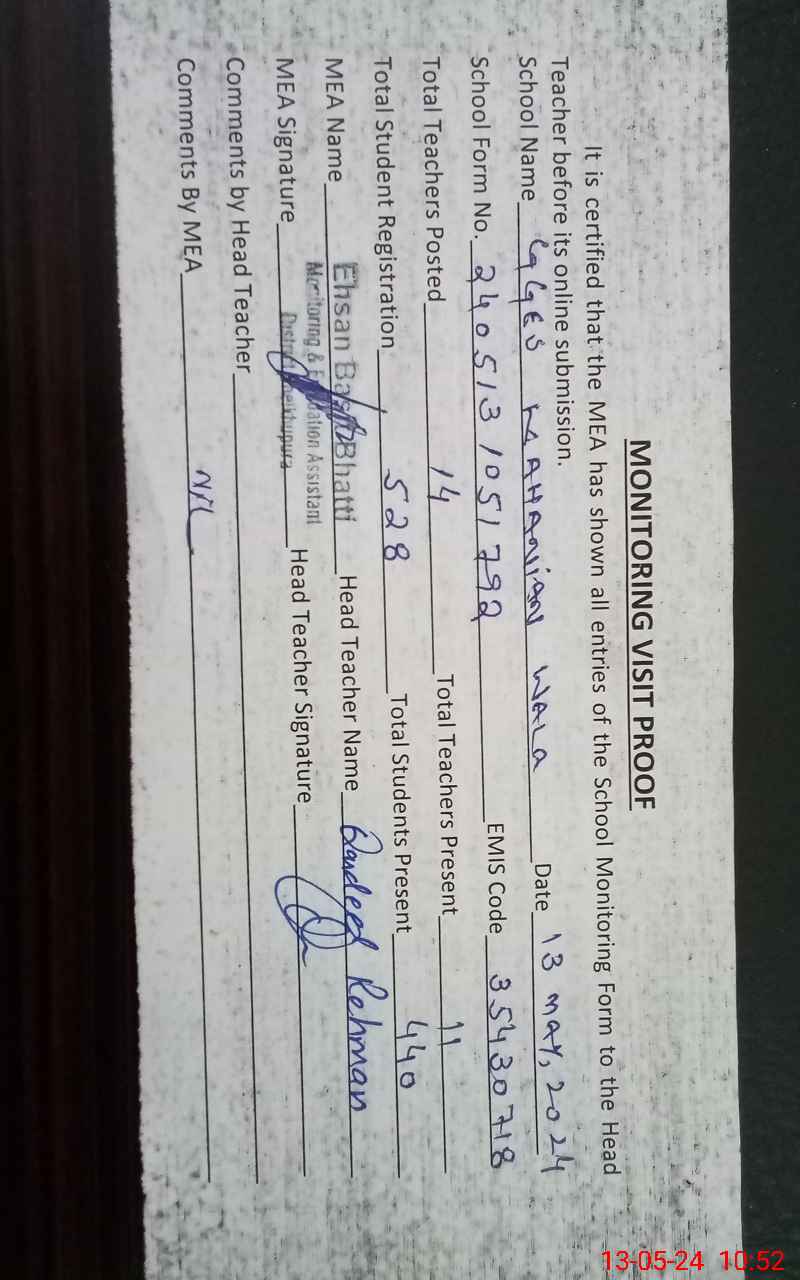 MONITORING VISIT PROOF
It is certified that the MEA has shown all entries of the School Monitoring Form to the Head
Teacher before its online submission.
School Name GGES MAHANIAN WALA Date 13 MAY, 2024
School Form No. 240513 1051792 EMIS Code 35430718
Total Teachers Posted 14 Total Teachers Present 11
Total Student Registration 528 Total Students Present 440
MEA Name Ehsan Bhatti Head Teacher Name Qandeel Rehman
Monitoring & Assistant
MEA Signature District Sheikhupura Head Teacher Signature
Comments by Head Teacher
Comments By MEA Nil
13-05-24 10:52